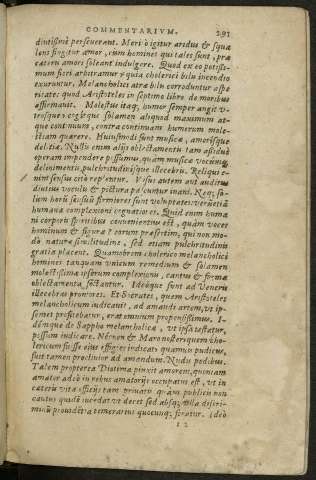 COMMENTARIVM. 291
diutissimè perseuerant. Meritò igitur aridus & squa
lens fingitur amor, cùm homines qui tales sunt, præ
cæteris amori soleant indulgere. Quod ex eo potissi-
mum fieri arbitramur quia cholerici bilis incendio
exuruntur, Melancholici atræ bilis corroduntur aspe
ritate: quod Aristoteles in septimo libro de moribus
affirmauit. Molestus itaq; humor semper angit v-
trosque: exigitque solamen aliquod maximum at-
que continuum, contra continuam humorum mole-
stiam quærere. Huiusmodi sunt musicæ, amorisque
delitiæ. Nulli enim alijs oblectamentis tam assiduam
operam impendere possumus, quàm musicæ vocumq;
delinimentis, pulchritudinisque illecebris. Reliqui e-
nim sensus citò replentur. Visus autem aut auditus
diutius voculis & pictura pascuntur inani. Neq; so-
lum horum sensuum firmiores sunt voluptates: verùm etiā
humanæ complexioni cognatiores. Quid enim huma
ni corporis spiritibus conuenientius est, quàm voces
hominum & figuræ? eorum præsertim, qui non mo-
dò naturæ similitudine, sed etiam pulchritudinis
gratia placent. Quamobrem cholerici melancholici
homines tanquam vnicum remedium & solamen
molestissimæ ipsorum complexionis, cantus & formæ
oblectamenta sectantur. Ideóque sunt ad Veneris
illecebras proniores. Et Socrates, quem Aristoteles
melancholicum iudicauit, ad amandi artem, vt ip-
semet profitebatur, erat omnium propensissimus. I-
démque de Sappho melancholica, vt ipsa testatur,
possum indicare. Maronster quem cho-
lericum fuisse eius effigies indicat: quamuis pudicus,
fuit tamen procliuior ad amandum. Nudis pedibus.
Talem propterea Diotima pinxit amorem, quoniam
amator adeò in rebus amatorijs occupatus est, vt in
cæteris vitæ officijs tam priuatis quàm publicis non
cautus quidē incedat vt decet sed absq; vlla discri-
minū prouidētia temerarius quocunq; feratur. Ideò